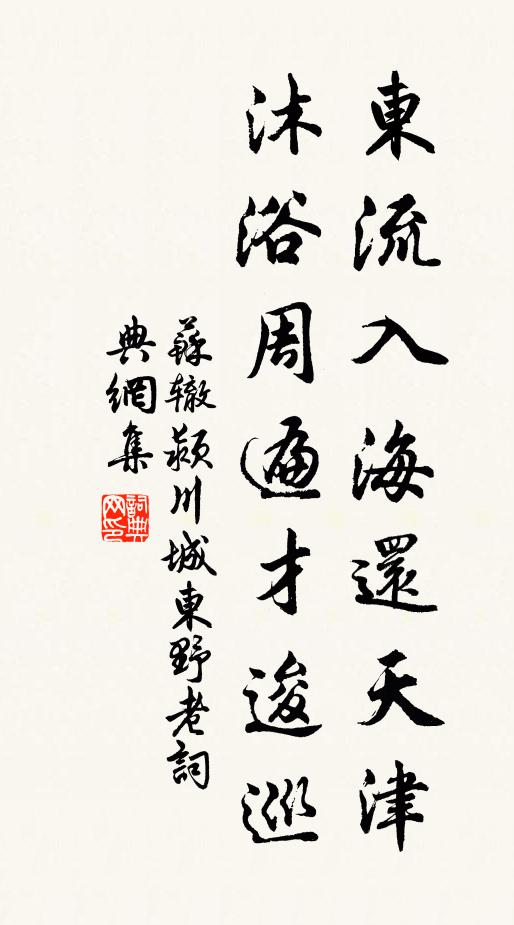 東流入海還天津
沐浴周遍才逡巡
蘇辙颍川城東野老詞
典網集
詞典网印